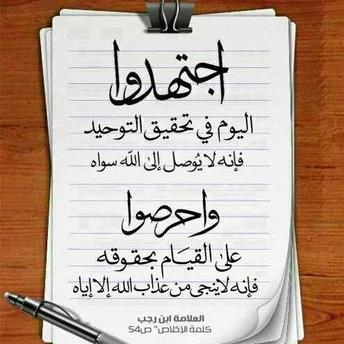 اجتهدوا
اليوم في تحقيق التوحيد
فإنه لا يُوصل إلى الله سواه
واحرصوا
على القيام بحقوقه
فإنه لا ينجي من عذاب الله إلا إياه
العلامة ابن رجب
كلمة الإخلاص" ص54